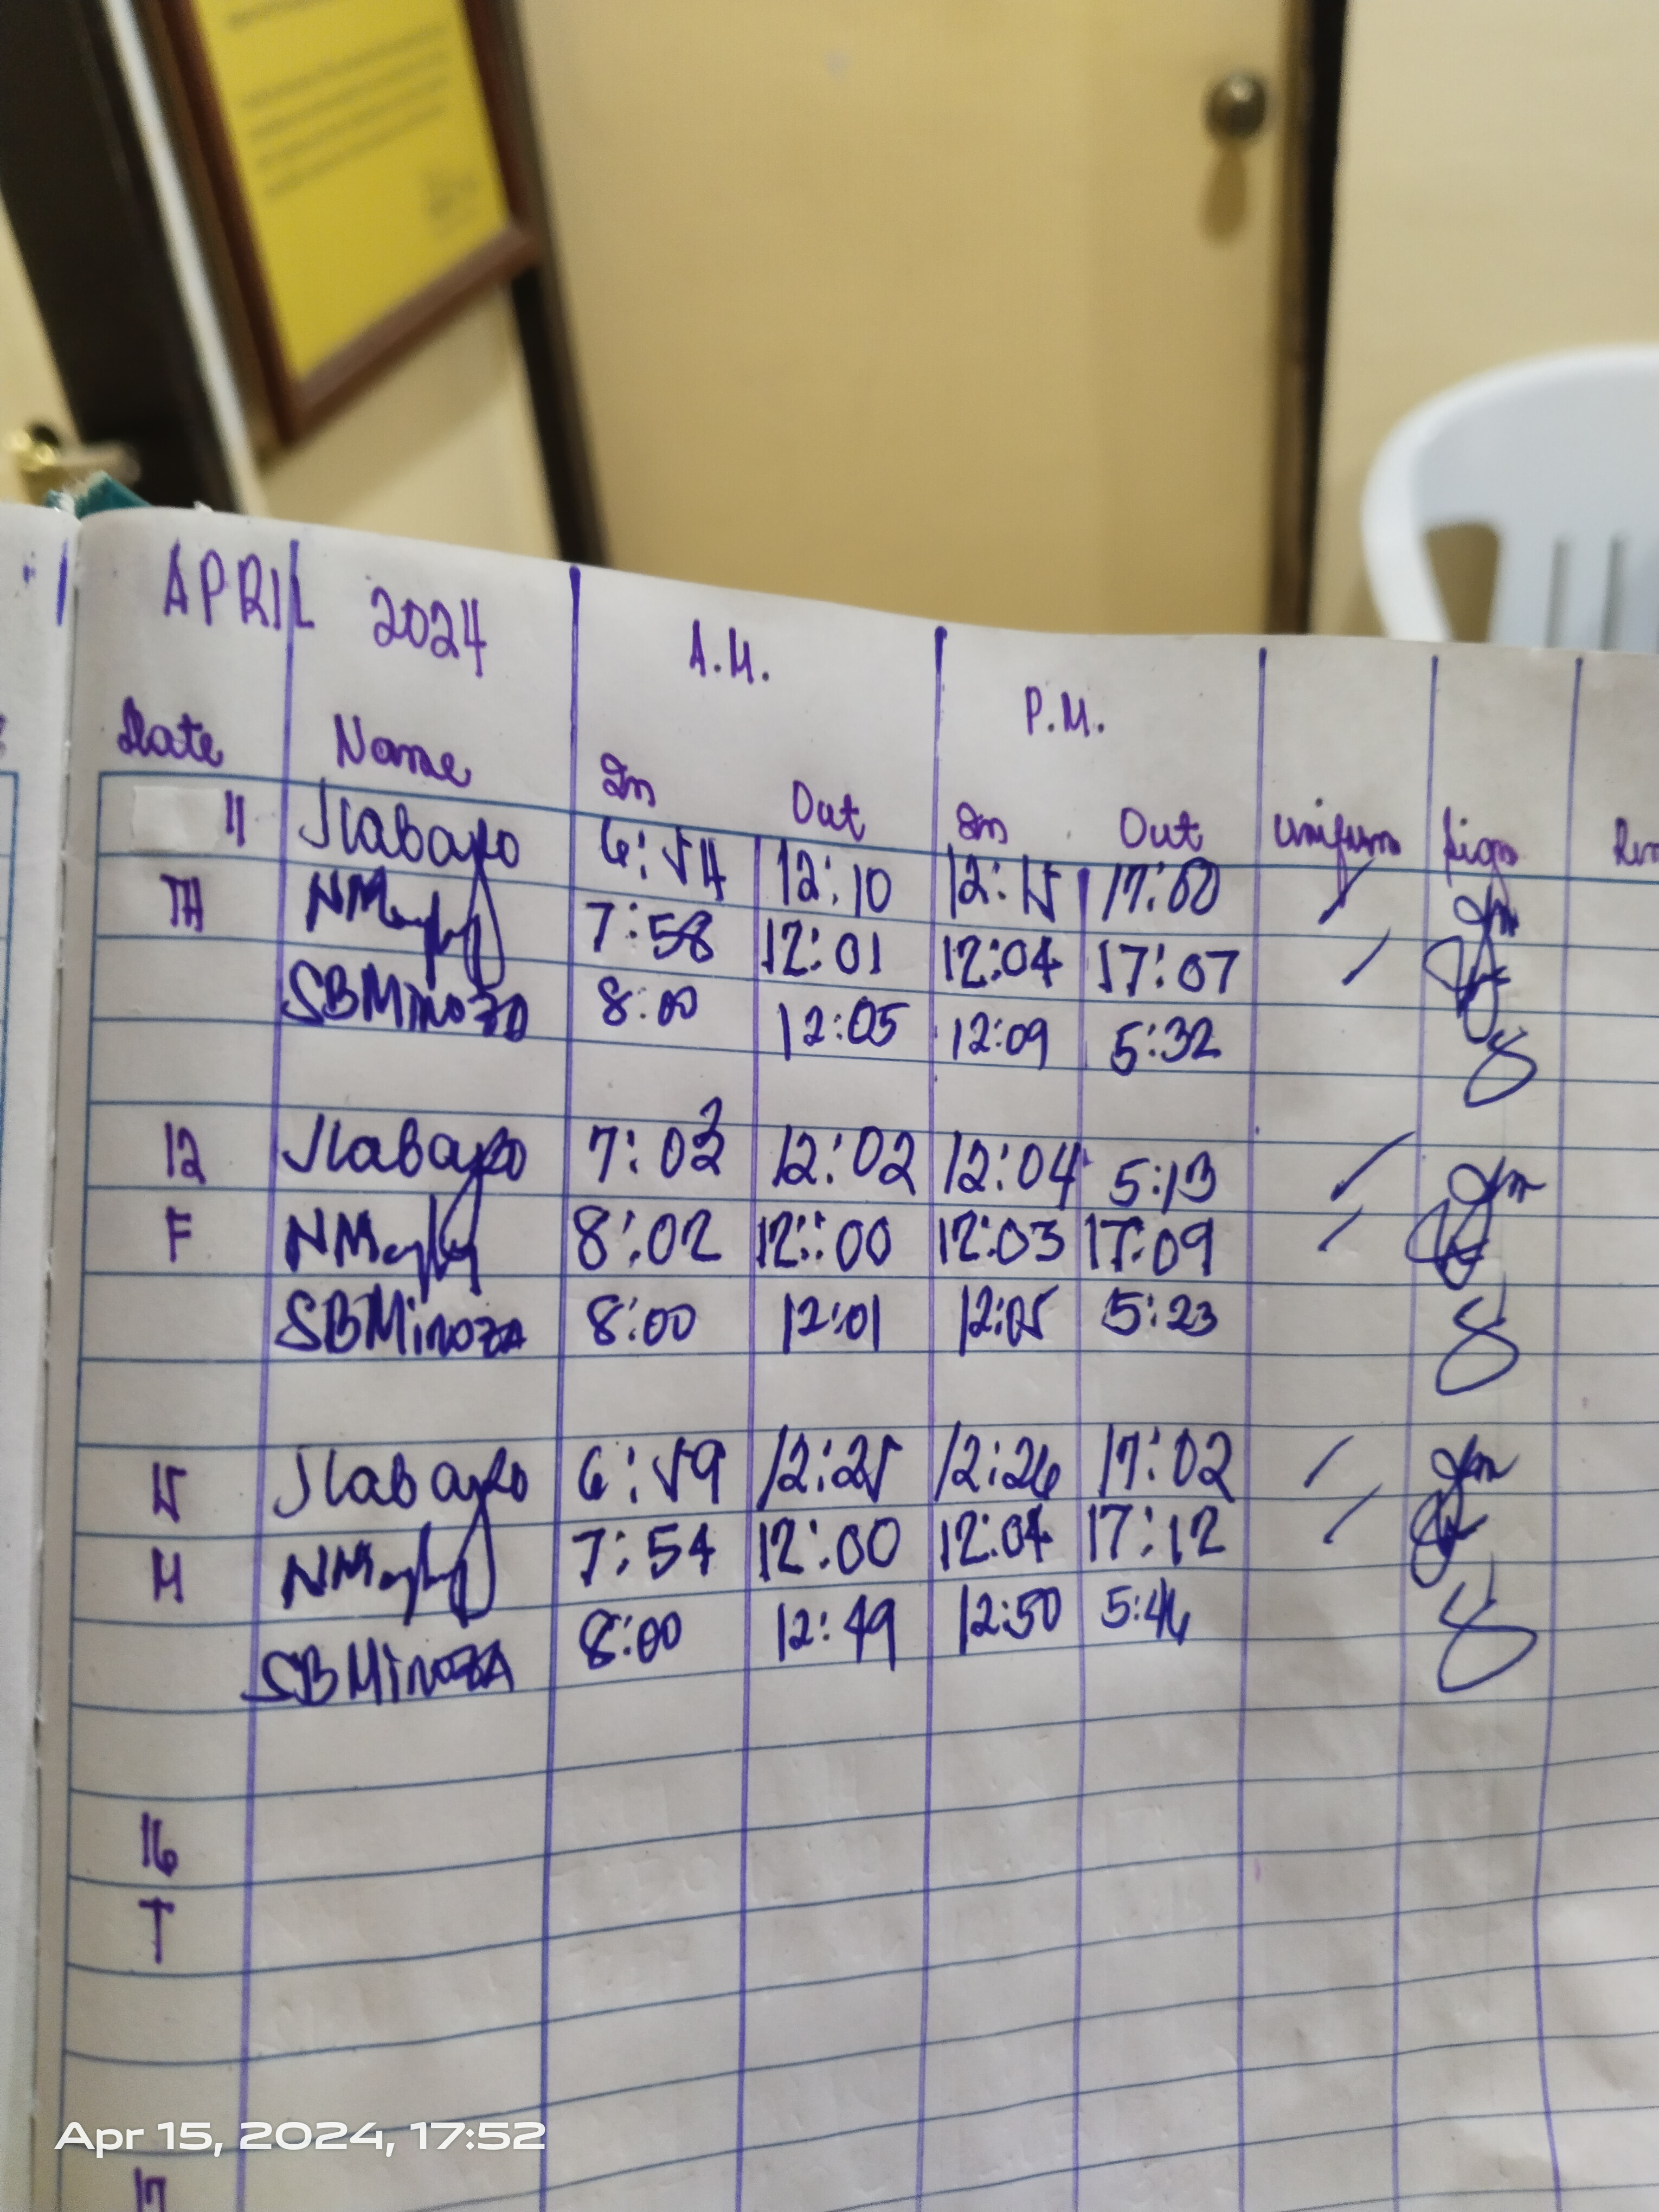 APRIL 2024 A.M. P.M.
Date Name In Out In Out Uniform Sign
11 JLabayo 6:54 12:10 12:15 17:00
TH 7:58 12:01 12:04 17:07
SBMinoza 8:00 12:05 12:09 5:32
12 JLabayo 7:03 12:02 12:04 5:13
F 8:02 12:00 12:03 17:09
SBMinoza 8:00 12:01 12:05 5:23
15 JLabayo 6:59 12:25 12:26 17:02
M 7:54 12:00 12:04 17:12
SBMinoza 8:00 12:49 12:50 5:46
16
T
Apr 15, 2024, 17:52
17